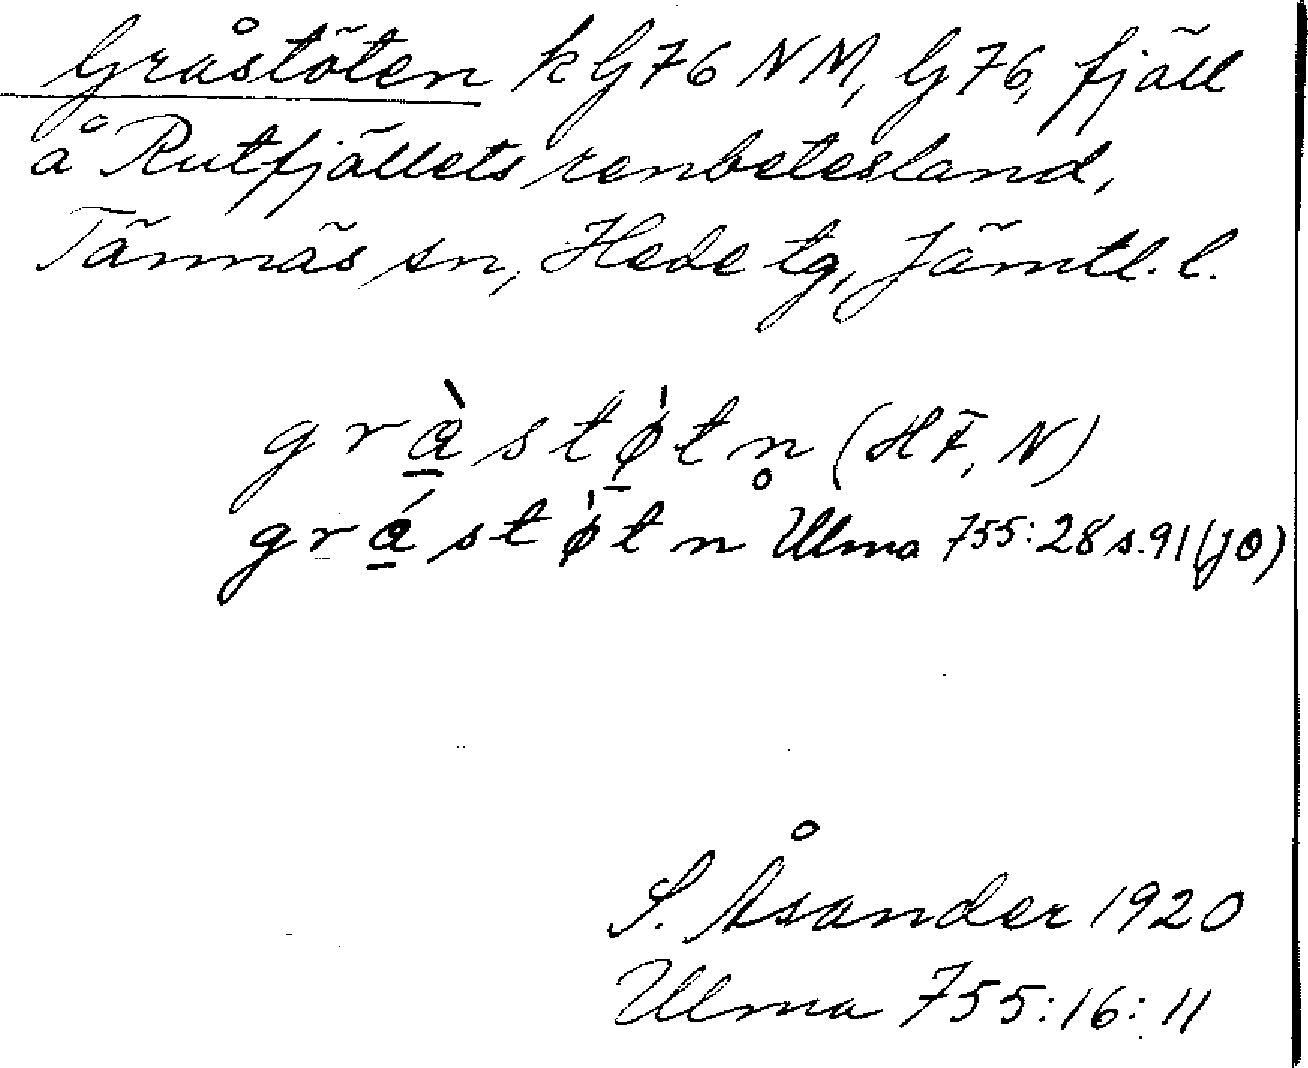 Gråstöten k G 76 NM, G 76, fjäll
å Rutfjällets renbetesland,
Tännäs sn, Hede tg, Jämtl. l.
grà̱stø̱̍tn̥ (HF, N)
grá̱stø̍tn Ulma 755:28 s. 91 (JO)
S. Åsander 1920
Ulma 755:16:11